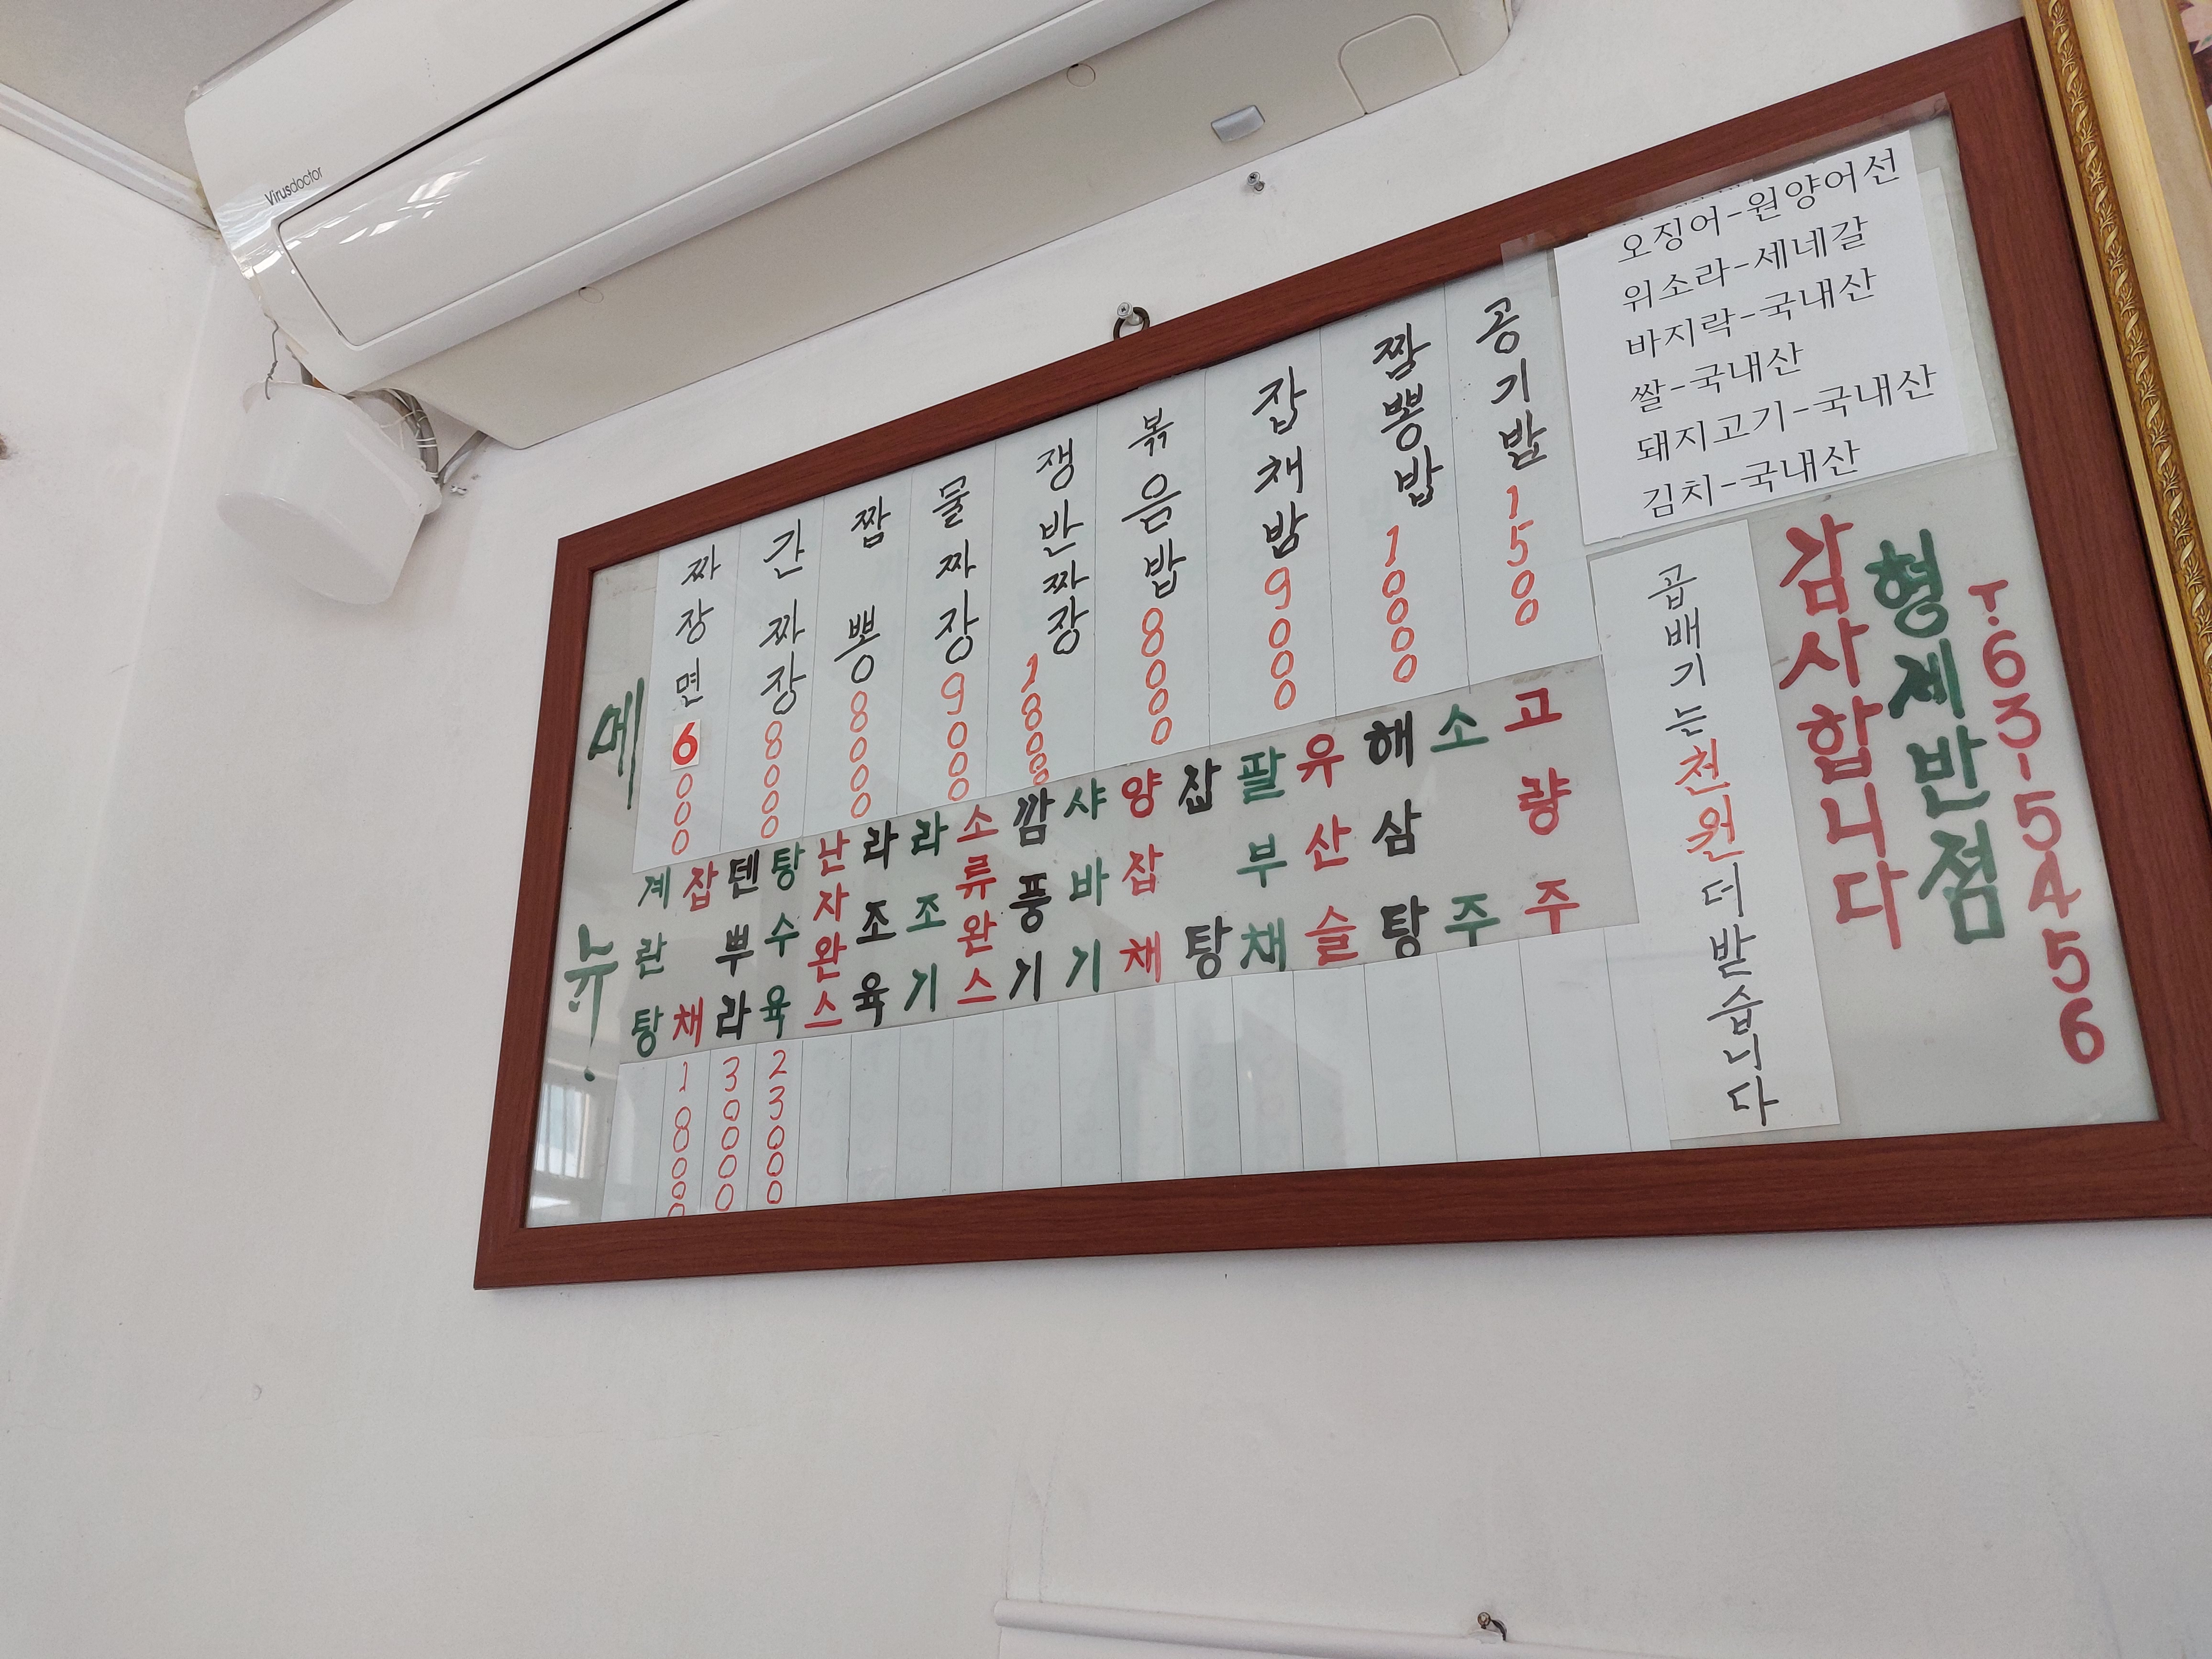 Virusdoctor
메뉴
짜장면 6000
간짜장 8000
짬뽕 8000
물짜장 9000
쟁반짜장 18000
볶음밥 8000
잡채밥 9000
짬뽕밥 10000
공기밥 1500
계란탕
잡채 18000
텐뿌라 3000
탕수육 23000
난자완스
라조육
라조기
소류완스
깜풍기
샤바기
양잡채
잡탕
팔부채
유산슬
해삼탕
소주
고량주
오징어-원양어선
위소라-세네갈
바지락-국내산
쌀-국내산
돼지고기-국내산
김치-국내산
곱배기는 천원 더 받습니다
감사합니다
형제반점
T.63-5456